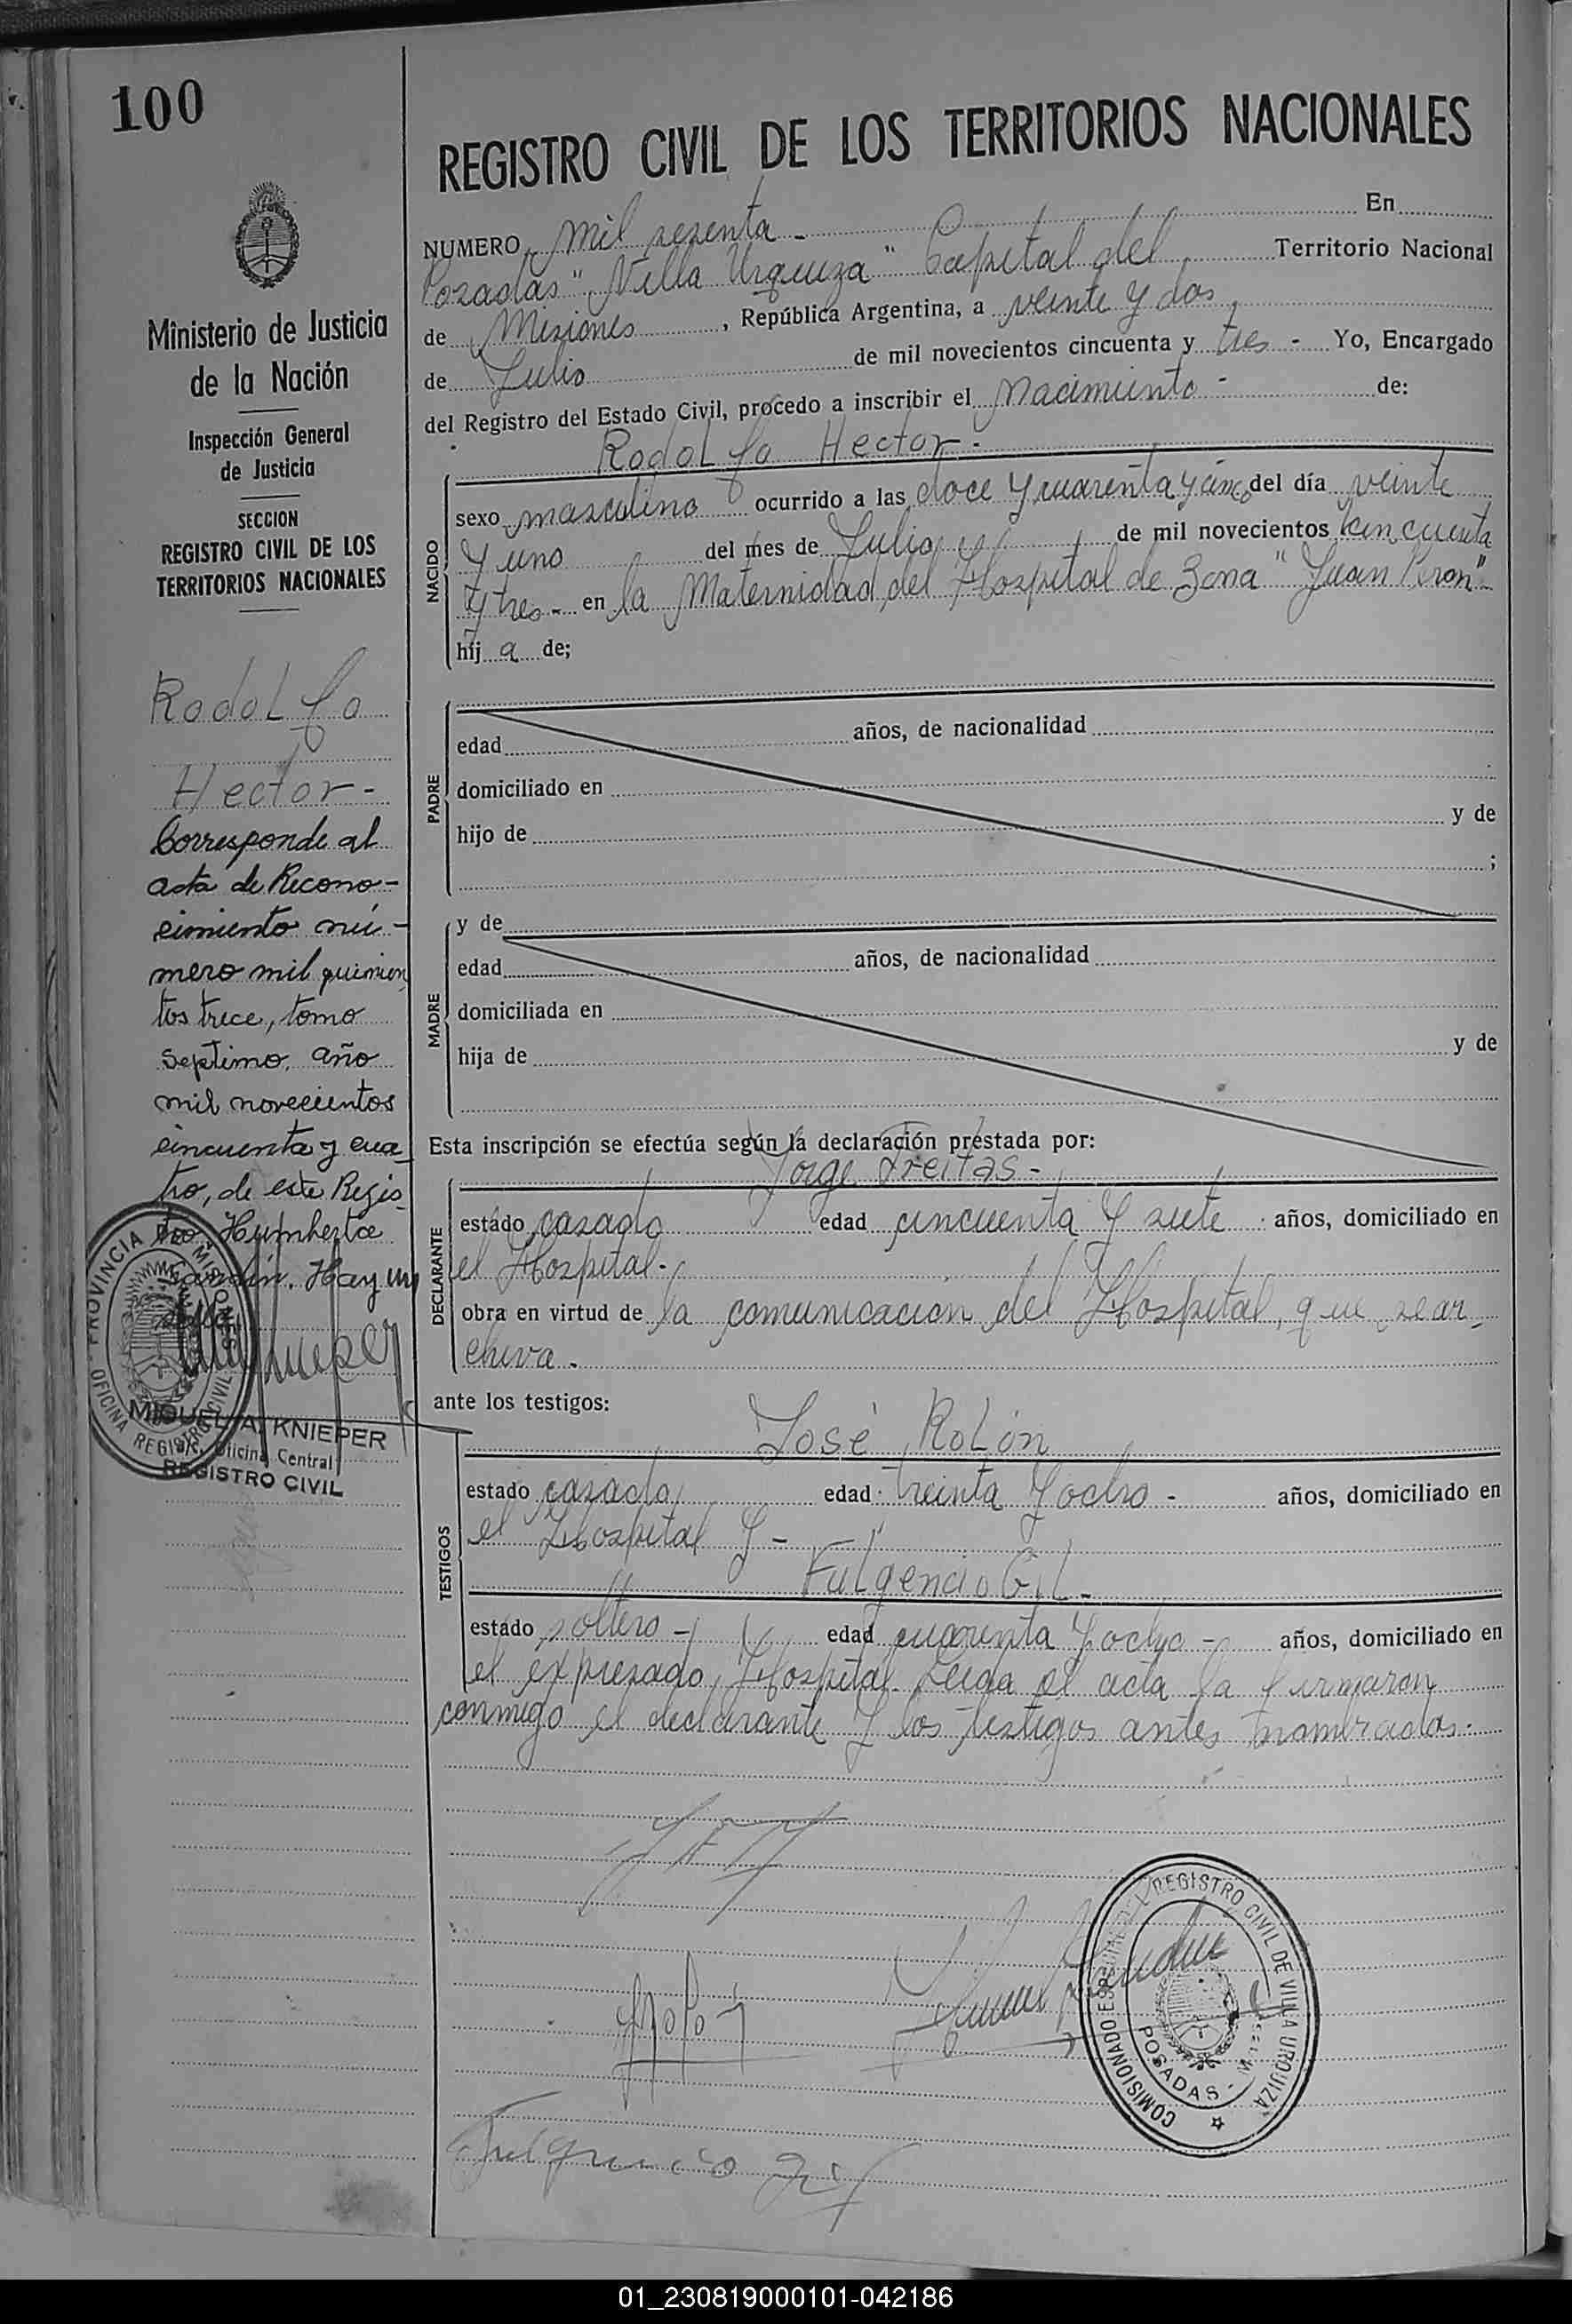 100
REGISTRO CIVIL DE LOS TERRITORIOS NACIONALES
Ministerio de Justicia
de la Nación
Inspección General
de Justicia
SECCION
REGISTRO CIVIL DE LOS
TERRITORIOS NACIONALES
Rodolfo
Hector -
Corresponde al
acta de Recono-
cimiento nú-
mero mil quinien
tos trece, tomo
septimo, año
mil novecientos
cincuenta y cua-
tro, de este Regis-
tro. Humberto
Hay un
PROVINCIA DE MISIONES
OFICINA REGISTRO CIVIL
MIGUEL A. KNIEPER
Oficina Central
REGISTRO CIVIL
NUMERO mil sesenta - En
Posadas "Villa Urquiza" Capital del Territorio Nacional
de Misiones, República Argentina, a veinte y dos
de Julio de mil novecientos cincuenta y tres - Yo, Encargado
del Registro del Estado Civil, procedo a inscribir el nacimiento - de:
Rodolfo Hector -
NACIDO
sexo masculino ocurrido a las doce y cuarenta y cinco del día veinte
y uno del mes de Julio de mil novecientos cincuenta
y tres - en la Maternidad del Hospital de Zona "Juan Peron" -
hij a de;
PADRE
edad años, de nacionalidad
domiciliado en
hijo de y de
;
MADRE
y de
edad años, de nacionalidad
domiciliada en
hija de y de
Esta inscripción se efectúa según la declaración prestada por:
Jorge Freitas -
DECLARANTE
estado casado edad cincuenta y siete años, domiciliado en
el Hospital -
obra en virtud de la comunicacion del Hospital, que se ar-
chiva -
ante los testigos:
José Rolón
TESTIGOS
estado casado edad treinta y ocho - años, domiciliado en
el Hospital y -
Fulgencio Gil -
estado soltero - edad cuarenta y ocho - años, domiciliado en
el expresado Hospital. Leida el acta la firmaron
conmigo el declarante y los testigos antes nombrados -
Fulgencio Gil
COMISIONADO ESPECIAL DEL REGISTRO CIVIL DE VILLA URQUIZA
POSADAS -
01_230819000101-042186